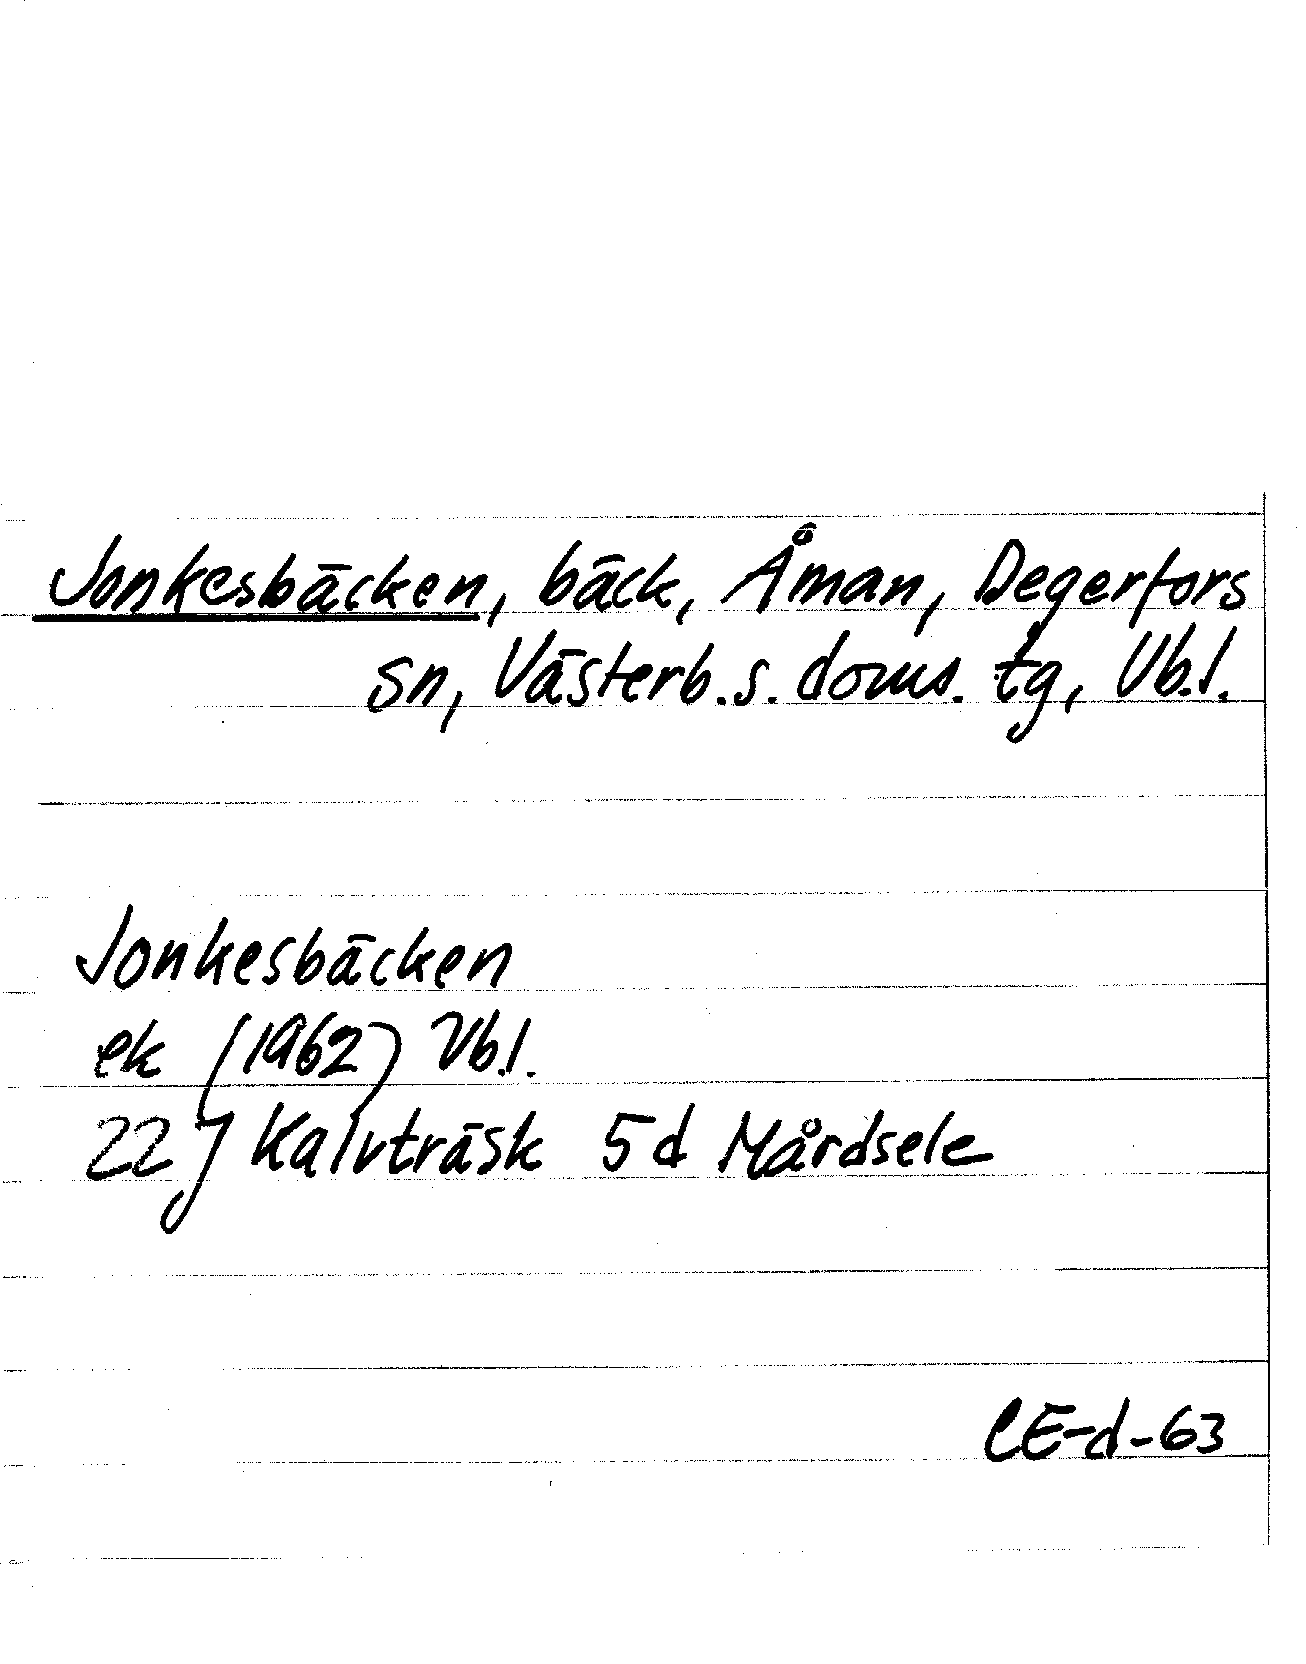 Jonkesbäcken, bäck, Åman, Degerfors
sn, Västerb.s. doms. tg, Vb.l.
Jonkesbäcken
ek (1962) Vb.l.
22 J Kalvträsk 5d Mårdsele
CE-d-63